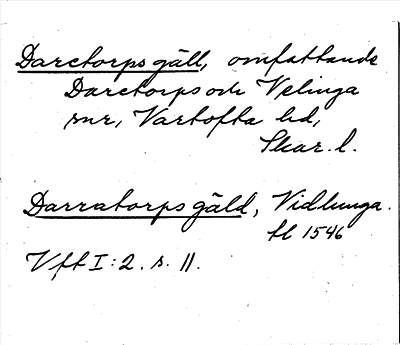 Daretorps gäll, omfattande
Daretorps och Velinga
snr, Vartofta hd,
Skar. l.
Darratorps gäld, Vidlunga.
fl 1546
Vft I:2. s. 11.